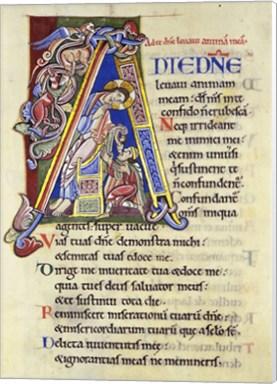 Ad te dn̄e leuaui animā meā.
A D TE DN̄E
leuaui animam
meam: d̄s m̄s in te
confido n̄ erubesca
Neq; irrideant
me inimici mei:
&enim uniuīsi
q̄i sustinent te
n̄ confundent̄.
Confundant̄
om̄s iniqua
agentes super uacue
Vias tuas dn̄e demonstra michi:
& semitas tuas edoce me.
Dirige me in ueritate tua & doce me:
quia tu es deus saluator meus:
& te sustinui tota die:
Reminiscere miserationū tuarū dn̄e:
& misericordiarum tuarū que a sc̄lo st̄:
Delicta iuuentutis mee:
& ignorantias meas ne memineris.